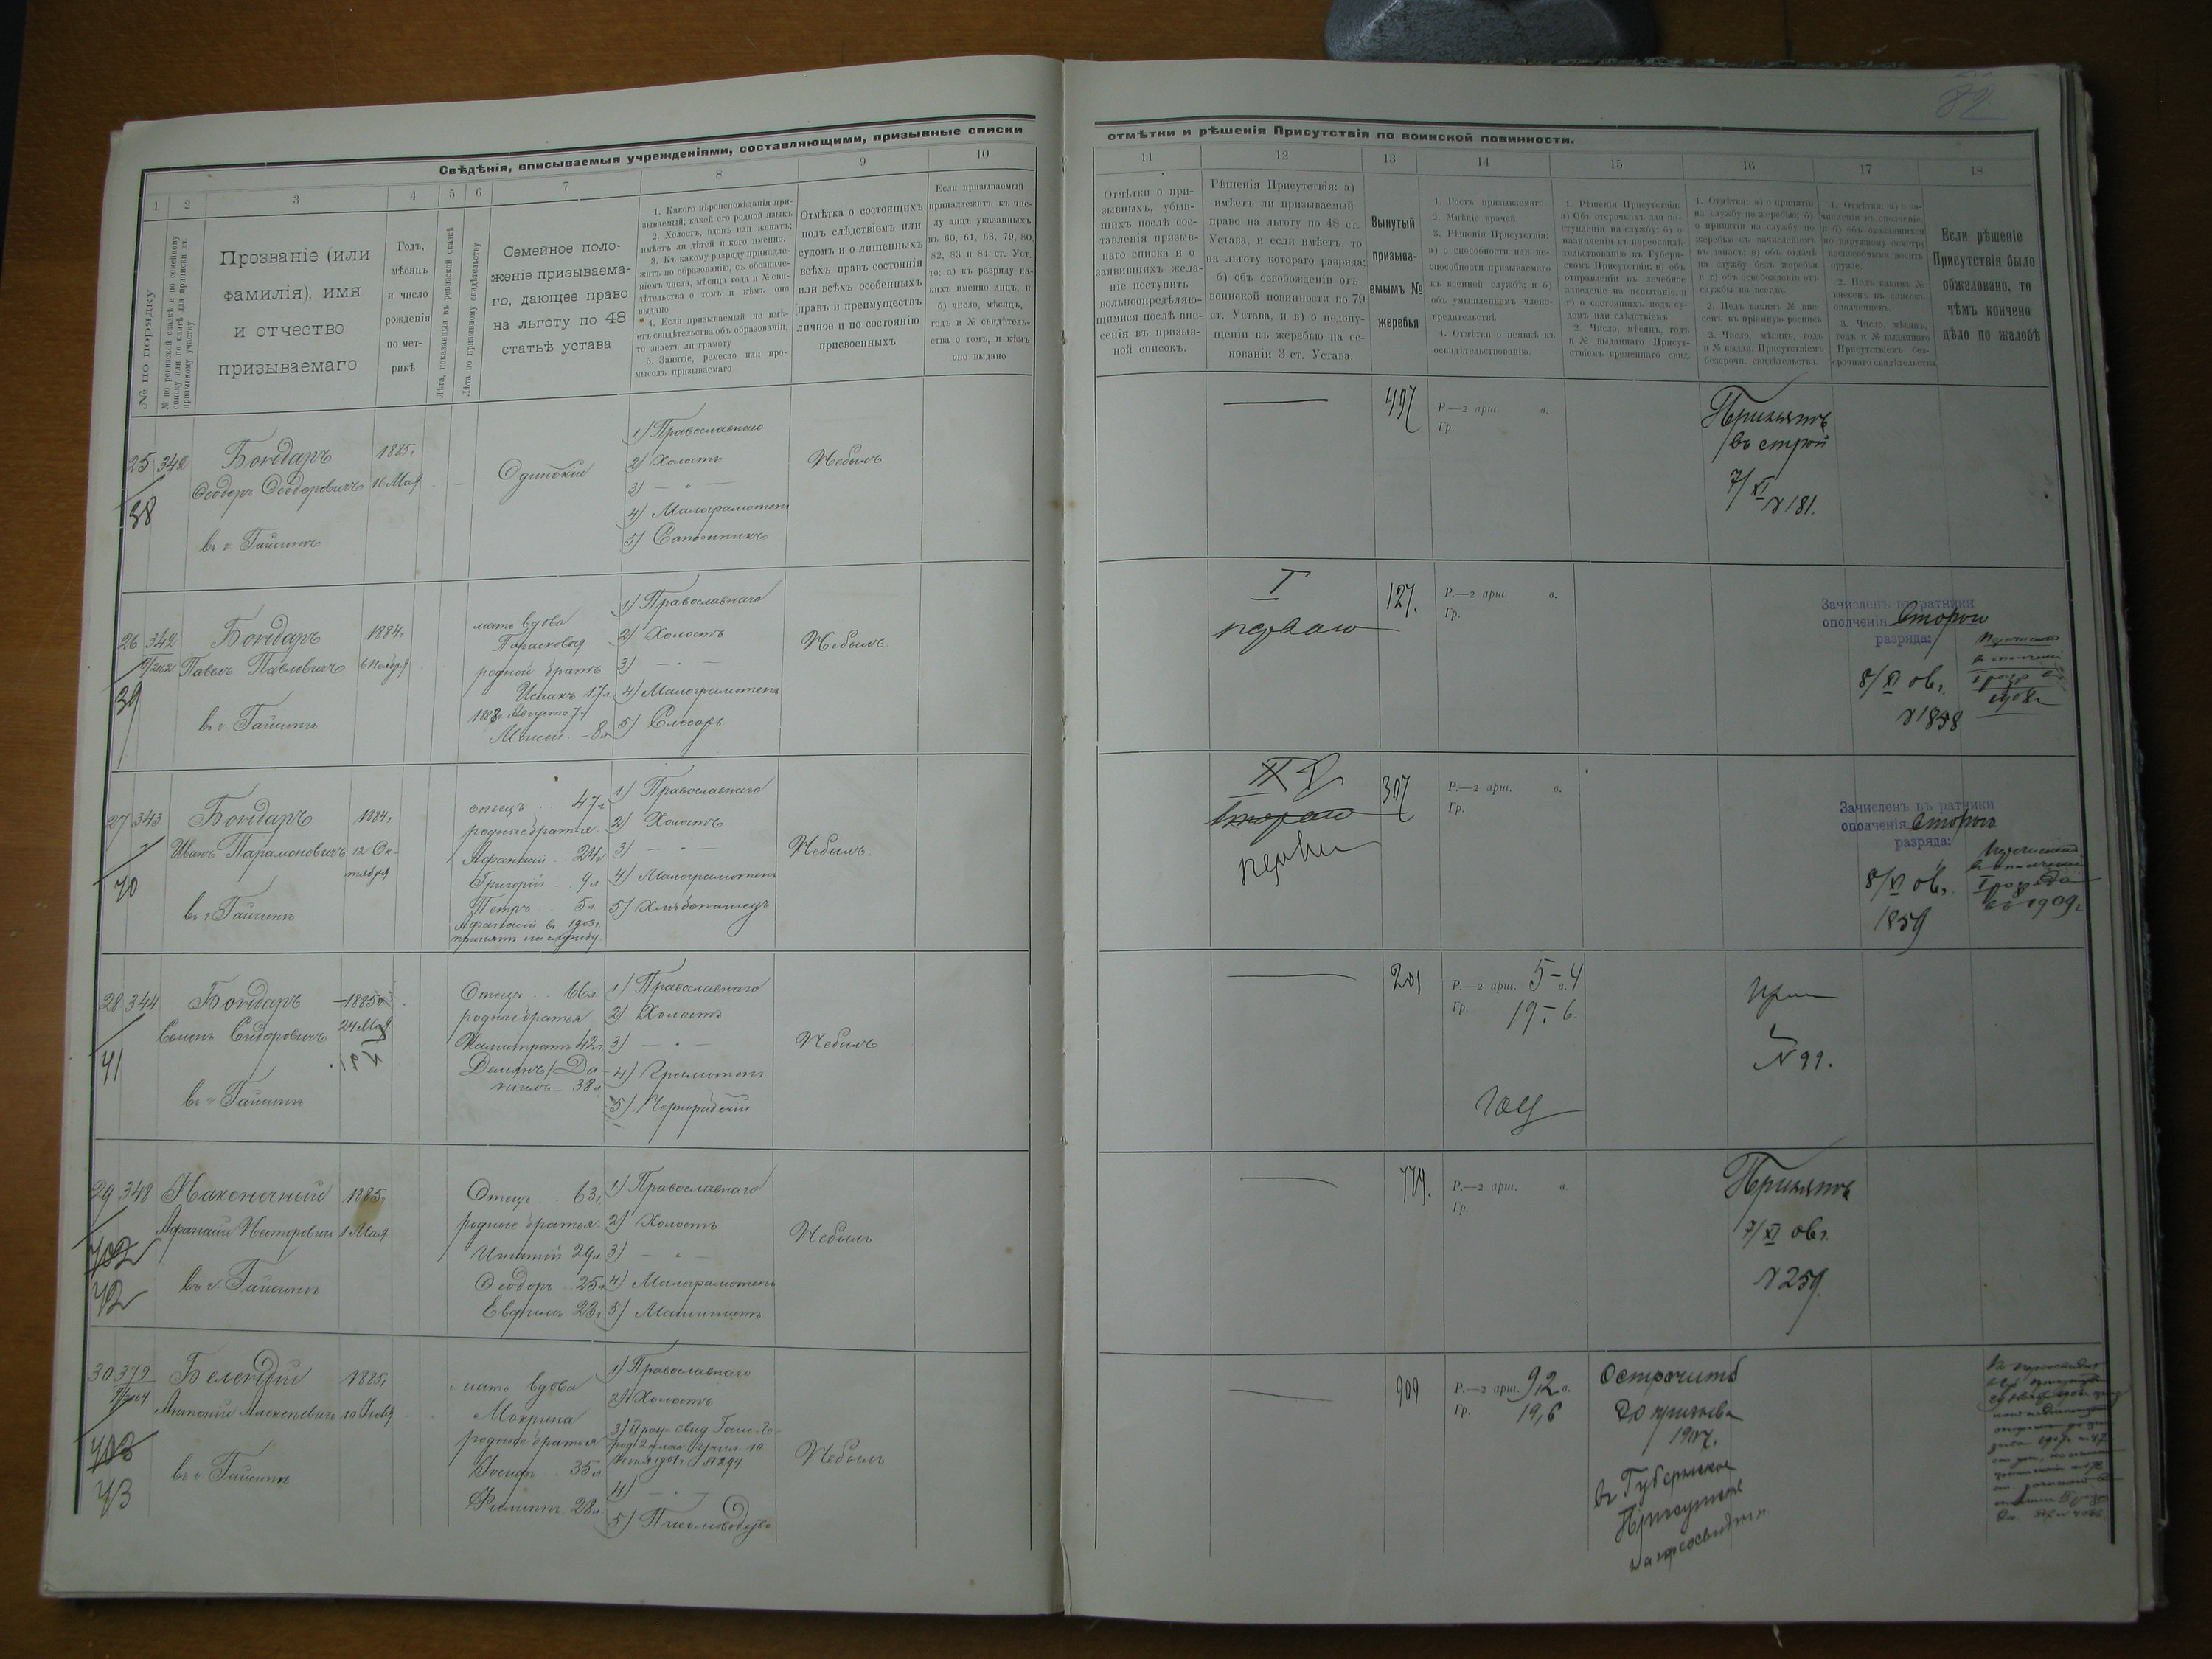 82
Свѣдѣнія, вписываемыя учрежденіями, составляющими, призывные списки
отмѣтки и рѣшенія Присутствія по воинской повинности.
1 2 3 4 5 6 7 8 9 10
11 12 13 14 15 16 17 18
№ по порядку
№ по ревизской сказкѣ и по семейному
списку или по книгѣ для приписки къ
призывному участку
Прозваніе (или
фамилія), имя
и отчество
призываемаго
Годъ,
мѣсяцъ
и число
рожденія
по мет-
рикѣ
Лѣта, показанныя въ ревизской сказкѣ
Лѣта по призывному свидѣтельству
Семейное поло-
женіе призываема-
го, дающее право
на льготу по 48
статьѣ устава
1. Какого вѣроисповѣданія при-
зываемый; какой его родной языкъ
2. Холостъ, вдовъ или женатъ;
имѣетъ ли дѣтей и кого именно.
3. Къ какому разряду принадле-
житъ по образованію, съ обозначе-
ніемъ числа, мѣсяца года и № сви-
дѣтельства о томъ и кѣмъ оно
выдано
4. Если призываемый не имѣ-
етъ свидѣтельства объ образованіи,
то знаетъ ли грамоту
5. Занятіе, ремесло или про-
мыселъ призываемаго
Отмѣтка о состоящихъ
подъ слѣдствіемъ или
судомъ и о лишенныхъ
всѣхъ правъ состоянія
или всѣхъ особенныхъ
правъ и преимуществъ
личное и по состоянію
присвоенныхъ
Если призываемый
принадлежитъ къ чис-
лу лицъ указанныхъ
въ 60, 61, 63, 79, 80,
82, 83 и 84 ст. Уст.
то: а) къ разряду ка-
кихъ именно лицъ, и
б) число, мѣсяцъ,
годъ и № свидѣтель-
ства о томъ, и кѣмъ
оно выдано
Отмѣтки о при-
зывныхъ, убыв-
шихъ послѣ сос-
тавленія призыв-
наго списка и о
заявившихъ жела-
ніе поступить
вольноопредѣляю-
щимися послѣ вне-
сенія въ призыв-
ной списокъ.
Рѣшенія Присутствія: а)
имѣетъ ли призываемый
право на льготу по 48 ст.
Устава, и если имѣетъ, то
на льготу котораго разряда;
б) объ освобожденіи отъ
воинской повинности по 79
ст. Устава, и в) о недопу-
щеніи къ жеребью на ос-
нованіи 3 ст. Устава.
Вынутый
призыва-
емымъ №
жеребья
1. Ростъ призываемаго.
2. Мнѣніе врачей
3. Рѣшенія Присутствія:
а) о способности или не-
способности призываемаго
къ военной службѣ; и б)
объ умышленномъ члено-
вредительствѣ.
4. Отмѣтки о неявкѣ къ
освидѣтельствованію.
1. Рѣшенія Присутствія:
а) Объ отсрочкахъ для по-
ступленія на службу; б) о
назначеніи къ переосвидѣ-
тельствованію въ Губерн-
скомъ Присутствіи; в) объ
отправленіи въ лечебное
заведеніе на испытаніе, и
г) о состоящихъ подъ су-
домъ или слѣдствіемъ
2. Число, мѣсяцъ, годъ
и № выданнаго Присут-
ствіемъ временнаго свид.
1. Отмѣтки: а) о принятіи
на службу по жеребью; б)
о принятіи на службу по
жеребью съ зачисленіемъ
въ запасъ; в) объ отдачѣ
на службу безъ жеребья
и г) объ освобожденіи отъ
службы на всегда.
2. Подъ какимъ № вне-
сенъ въ пріемную роспись
3. Число, мѣсяцъ, годъ
и № выдан. Присутствіемъ
безсрочн. свидѣтельства.
1. Отмѣтки: а) о за-
численіи въ ополченіе,
и б) объ оказавшихся
по наружному осмотру
неспособными носить
оружіе.
2. Подъ какимъ №
внесенъ въ списокъ
ополченцевъ.
3. Число, мѣсяцъ,
годъ и № выданнаго
Присутствіемъ без-
срочнаго свидѣтельства
Если рѣшеніе
Присутствія было
обжаловано, то
чѣмъ кончено
дѣло по жалобѣ
25 342
38
Бондаръ
Ѳеодоръ Ѳеодоровичъ
въ г. Гайсинѣ
1885г.
16 Мая
Одинокій
1) Православнаго
2) Холостъ
3) — " —
4) Малограмотенъ
5) Сапожникъ
Небылъ
497
Р.—2 арш. в.
Гр.
Принятъ
въ строй
7/XI
№181.
26 342
39
Бондаръ
Павелъ Павловичъ
въ г. Гайсинѣ
1884г.
6 Ноября
мать вдова
Парасковія
родной братъ
Исаакъ 17л.
Моисей – 8л
1) Православнаго
2) Холостъ
3) — " —
4) Малограмотенъ
5) Слесарь
Небылъ.
I
перваго
127.
Р.—2 арш. в.
Гр.
Зачисленъ въ ратники
ополченія второго
разряда:
8/XI 06г.
№1858
1908г
27 343
40
Бондаръ
Иванъ Парамоновичъ
въ г. Гайсинѣ
1884г.
12 Ок-
тября
отецъ 47л
родные братья
Афанасій 24л
Григорій 9л
Петръ 5л.
Афанасій въ 1903г.
принятъ на службу
1) Православнаго
2) Холостъ
3) — " —
4) Малограмотенъ
5) Хлѣбопашецъ
Небылъ.
второго
307
Р.—2 арш. в.
Гр.
Зачисленъ въ ратники
ополченія второго
разряда:
8/XI 06г.
1859
28 344
41
Бондаръ
Семенъ Сидоровичъ
въ г. Гайсинѣ
1885г.
24 Мая
Отецъ 66л.
родные братья
Калистратъ 42г.
Демянъ/Да-
ніилъ – 38л
1) Православнаго
2) Холостъ
3) — " —
4) Грамотенъ
5) Чернорабочій
Небылъ
201
Р.—2 арш. 5–4 в.
Гр. 19–6.
Год
№99.
29 348
402
42
Наконечный
Афанасій Несторовичъ
въ г. Гайсинѣ
1885г.
1 Мая
Отецъ 63г.
родные братья
Игнатій 29л
Ѳеодоръ 25л
Евфимъ 23г.
1) Православнаго
2) Холостъ
3) — " —
4) Малограмотенъ
5) Машинистъ
Небылъ
779.
Р.—2 арш. в.
Гр.
Принятъ
7/XI 06г.
№259.
30 379
403
43
Белендій
Антоній Алексѣевичъ
въ г. Гайсинѣ
1885г.
мать вдова
Макрина
родные братья
35л
28л
1) Православнаго
2) Холостъ
4) — " —
5) Письмоводство
Небылъ
909
Р.—2 арш. 9,2 в.
Гр. 19,6
Отсрочить
до призыва
1907г.
въ Губернское
Присутствіе